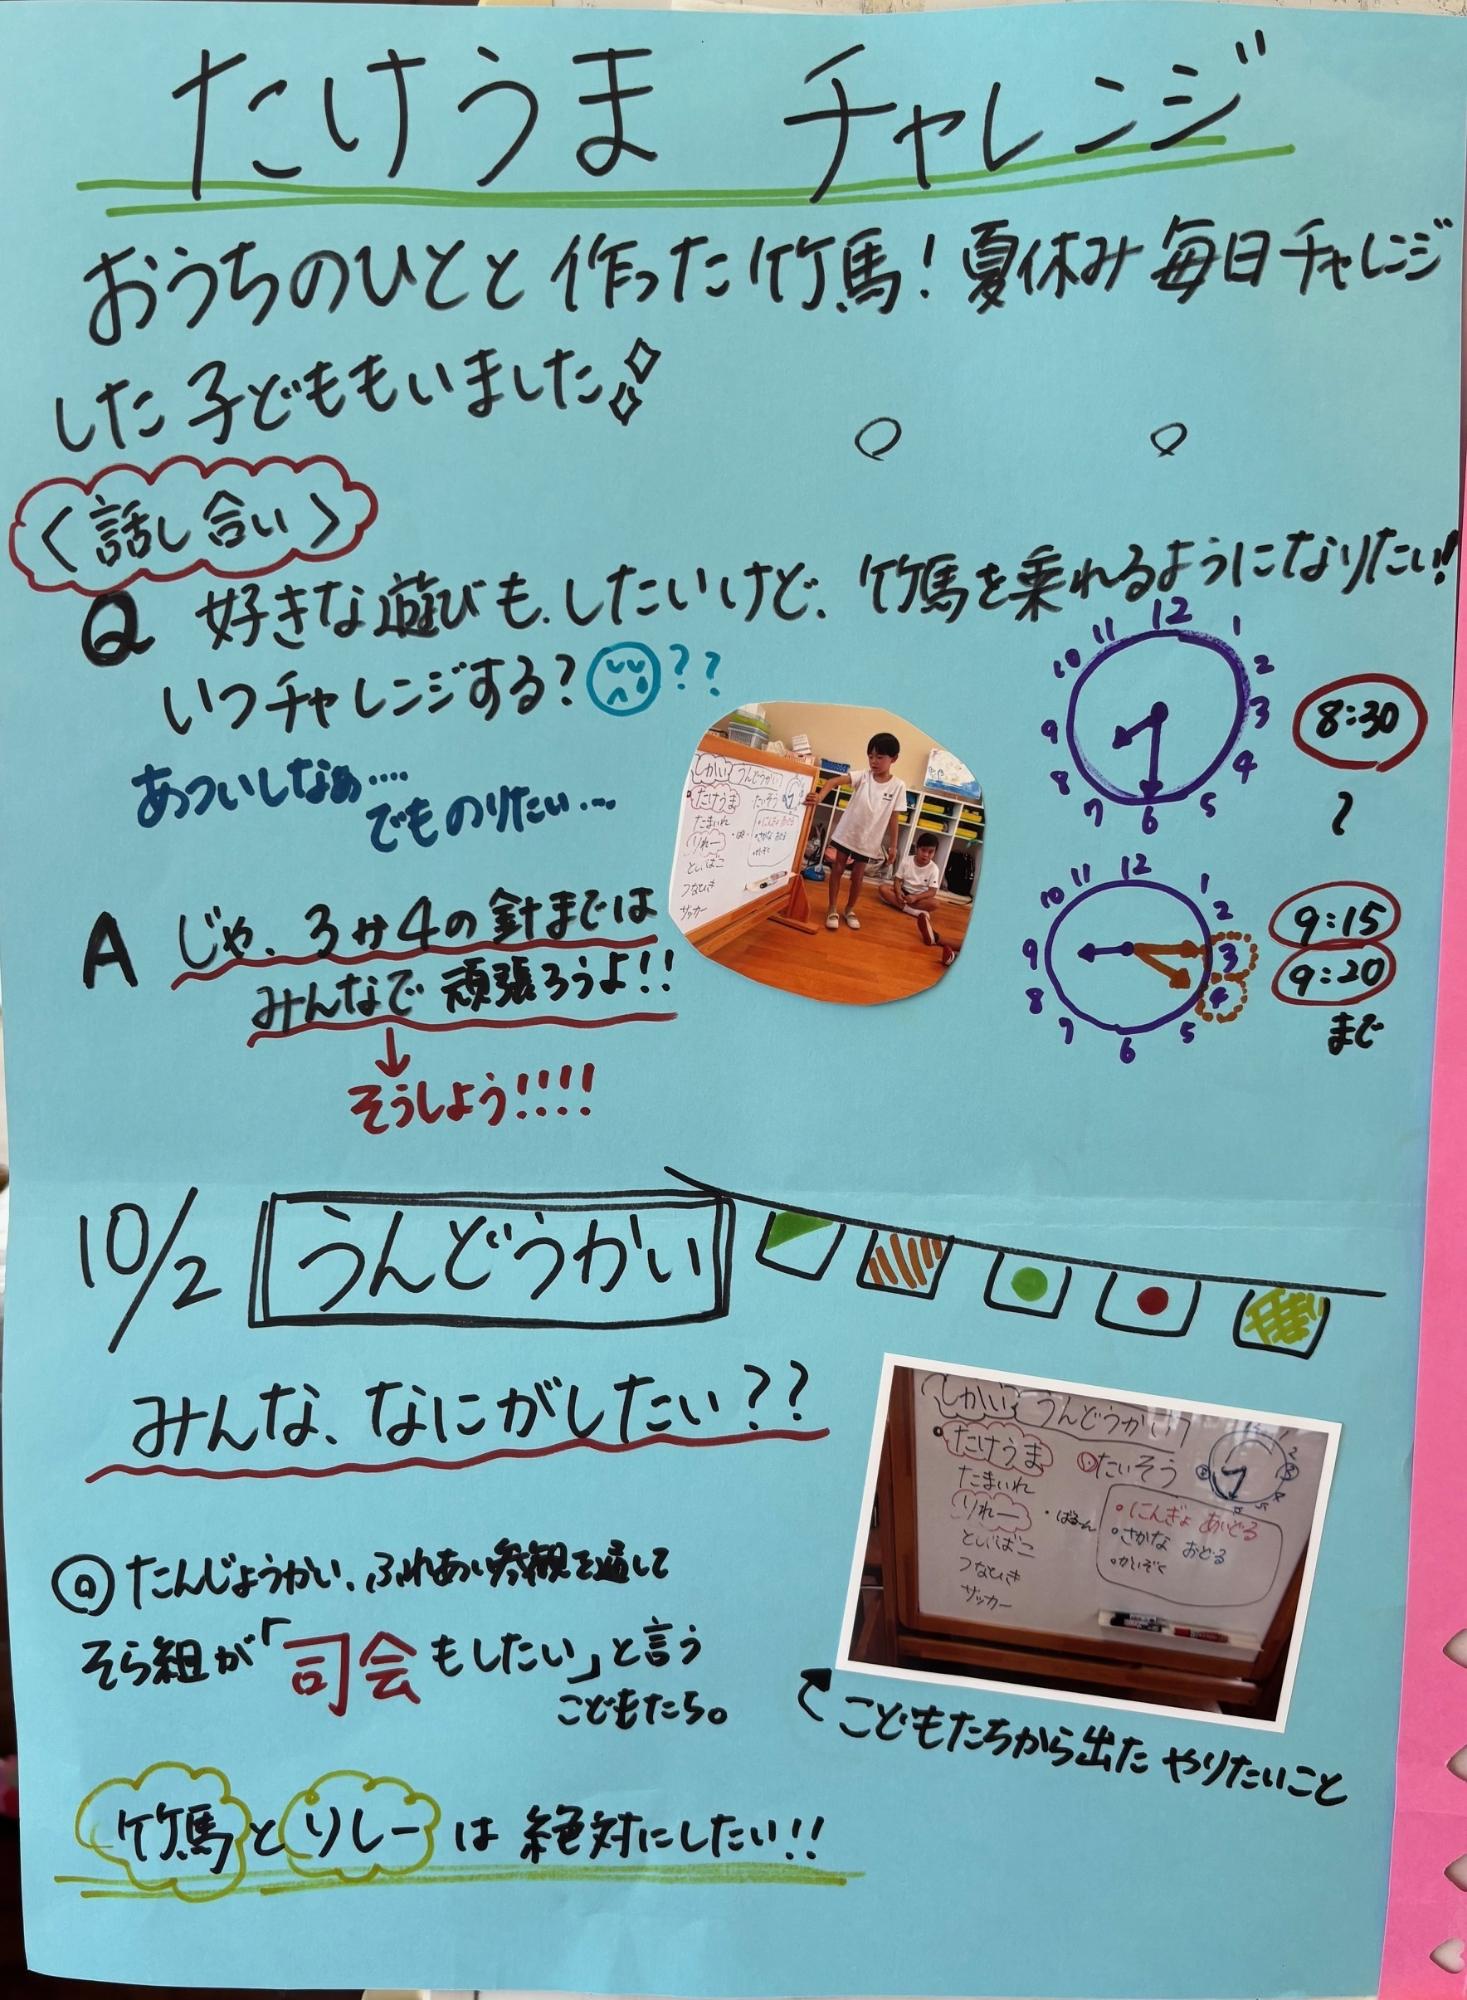 たけうま チャレンジ
おうちのひとと 作った 竹馬！ 夏休み 毎日 チャレンジ
した 子どももいました
〈話し合い〉
Q 好きな遊びも、したいけど、竹馬を乗れるようになりたい！
いつチャレンジする？ ？？
あついしなぁ‥‥
でものりたい…
A じゃ、3か4の針までは
みんなで 頑張ろうよ！！
↓
そうしよう！！！！
12 1 2 3 4 5 6 7 8 9 10 11
8:30
〜
12 1 2 3 4 5 6 7 8 9 10 11
9:15
9:20
まで
しかい うんどうかい
たけうま たいそう
たまいれ
りれー
とびばこ
つなひき
サッカー
にんぎょ あいどる
さかな おどる
かいぞく
10/2 うんどうかい
みんな、なにがしたい？？
たんじょうかい、ふれあい参観を通して
そら組が「司会もしたい」と言う
こどもたち。
しかい うんどうかい
たけうま たいそう
たまいれ
りれー ・ばるーん
とびばこ
つなひき
サッカー
にんぎょ あいどる
さかな おどる
かいぞく
こどもたちから出た やりたいこと
竹馬とリレーは 絶対にしたい！！